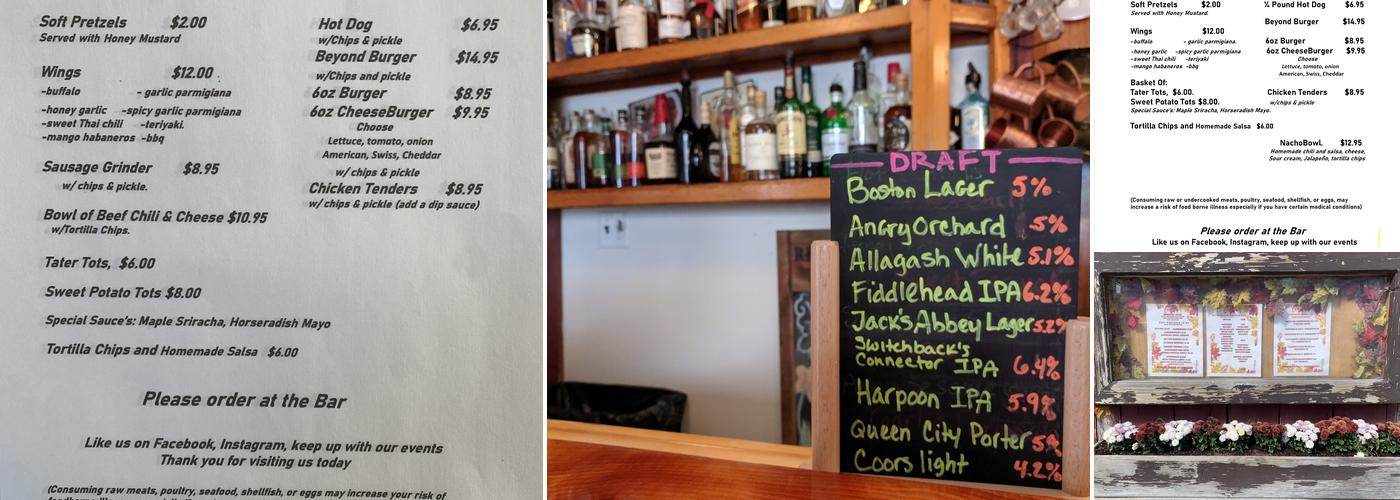 Soft Pretzels $2.00
Served with Honey Mustard
Wings $12.00
-buffalo - garlic parmigiana
-honey garlic -spicy garlic parmigiana
-sweet Thai chili -teriyaki.
-mango habaneros -bbq
Sausage Grinder $8.95
w/ chips & pickle.
Bowl of Beef Chili & Cheese $10.95
w/Tortilla Chips.
Tater Tots, $6.00
Sweet Potato Tots $8.00
Special Sauce's: Maple Sriracha, Horseradish Mayo
Tortilla Chips and Homemade Salsa $6.00
Hot Dog $6.95
w/Chips & pickle
Beyond Burger $14.95
w/Chips and pickle
6oz Burger $8.95
6oz CheeseBurger $9.95
Choose
Lettuce, tomato, onion
American, Swiss, Cheddar
w/ chips & pickle
Chicken Tenders $8.95
w/ chips & pickle (add a dip sauce)
Please order at the Bar
Like us on Facebook, Instagram, keep up with our events
Thank you for visiting us today
(Consuming raw meats, poultry, seafood, shellfish, or eggs may increase your risk of
DRAFT
Boston Lager 5%
Angry Orchard 5%
Allagash White 5.1%
Fiddlehead IPA 6.2%
Jack's Abbey Lager 5.2%
Switchback's
Connector IPA 6.4%
Harpoon IPA 5.9%
Queen City Porter 5%
Coors light 4.2%
Soft Pretzels $2.00
Served with Honey Mustard.
Wings $12.00
-buffalo - garlic parmigiana.
-honey garlic -spicy garlic parmigiana
-sweet Thai chili -teriyaki
-mango habaneros -bbq
Basket Of:
Tater Tots, $6.00.
Sweet Potato Tots $8.00.
Special Sauce's: Maple Sriracha, Horseradish Mayo.
Tortilla Chips and Homemade Salsa $6.00
¼ Pound Hot Dog $6.95
Beyond Burger $14.95
6oz Burger $8.95
6oz CheeseBurger $9.95
Choose
Lettuce, tomato, onion
American, Swiss, Cheddar
Chicken Tenders $8.95
w/chips & pickle
NachoBowl. $12.95
Homemade chili and salsa, cheese,
Sour cream, Jalapeño, tortilla chips
(Consuming raw or undercooked meats, poultry, seafood, shellfish, or eggs, may
increase a risk of food borne illness especially if you have certain medical conditions)
Please order at the Bar
Like us on Facebook, Instagram, keep up with our events